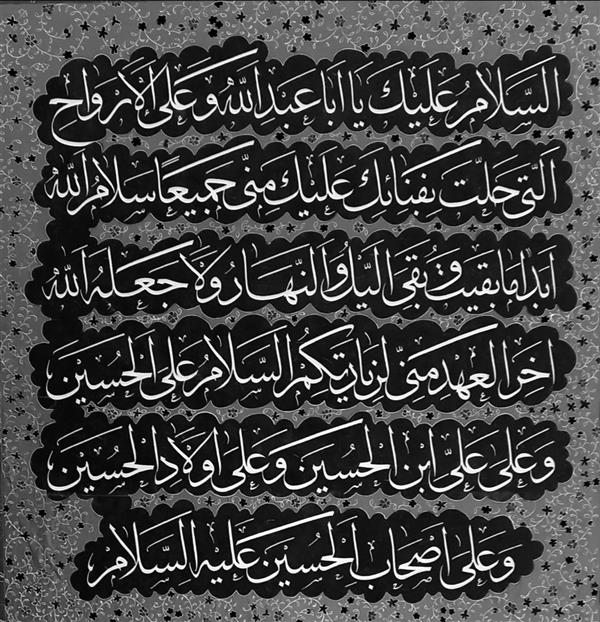 السلام عليك يا ابا عبد الله و على الارواح
التي حلت بفنائك عليك مني جميعا سلام الله
ابدا ما بقيت و بقي اليل و النهار ولا جعله الله
اخر العهد مني لزيارتكم السلام على الحسين
و على علي ابن الحسين و على اولاد الحسين
و على اصحاب الحسين عليه السلام